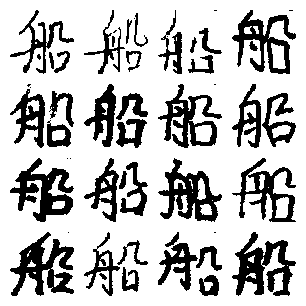 船船船船
船船船船
船船船船
船船船船